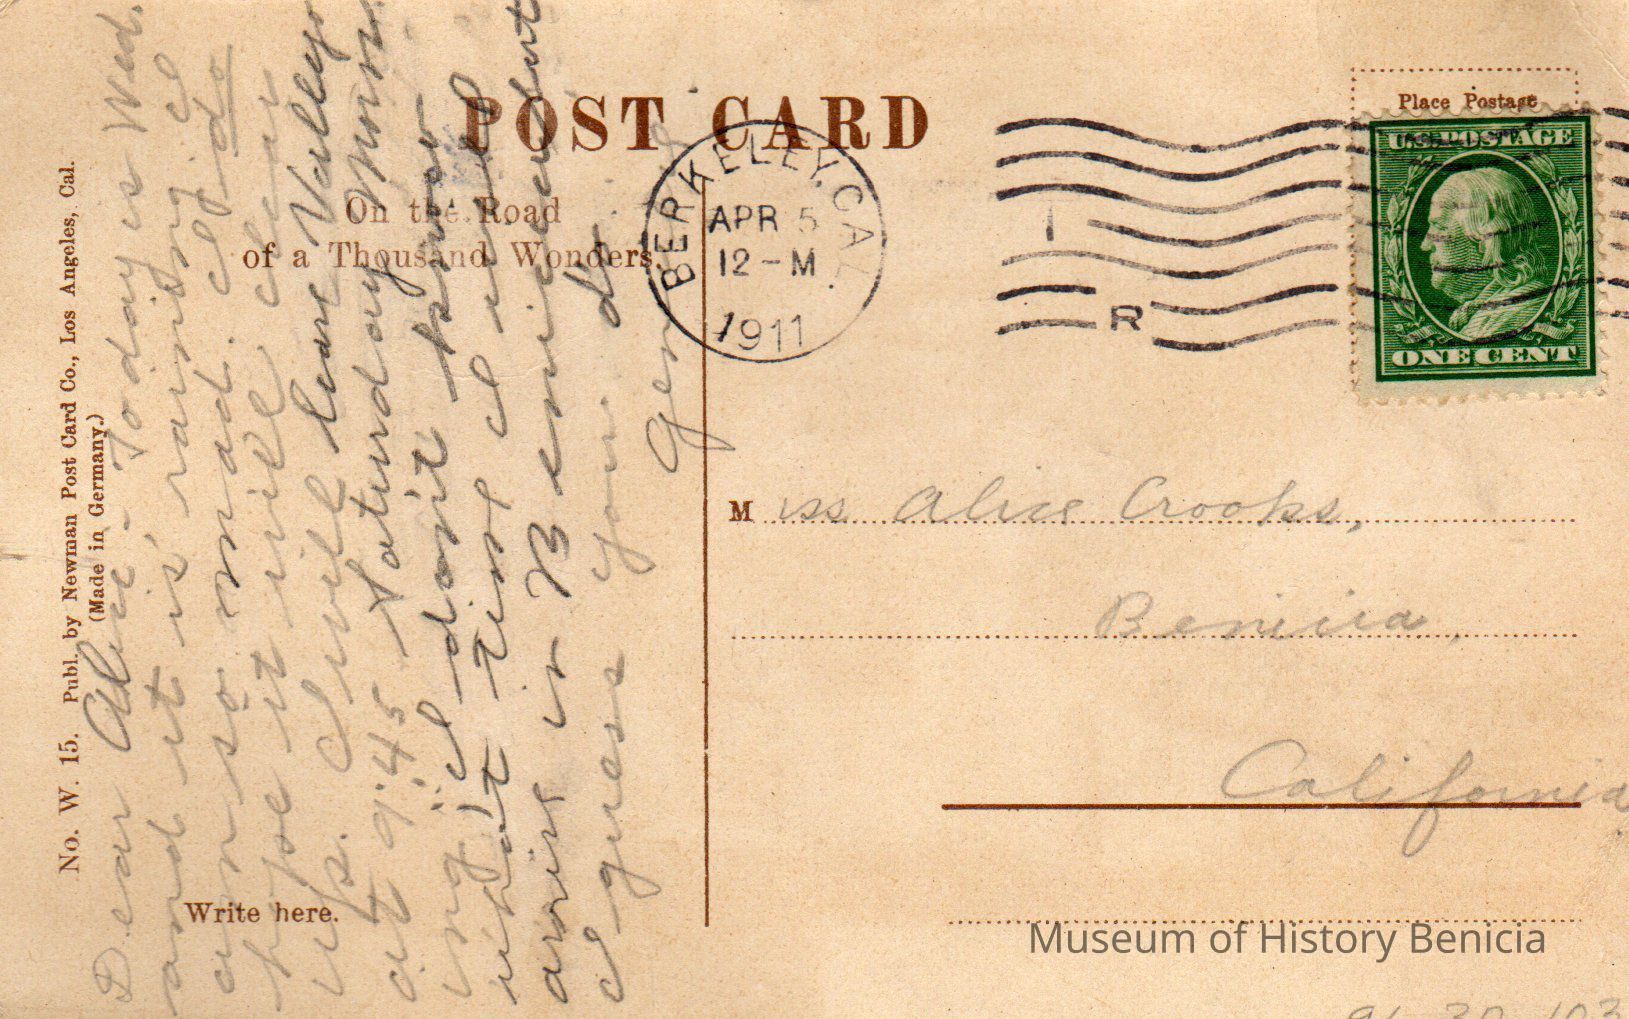 POST CARD
On the Road
of a Thousand Wonders.
Place Postage
U.S. POSTAGE
ONE CENT
BERKELEY, CAL.
APR 5
12-M
1911
R
No. W. 15. Publ. by Newman Post Card Co., Los Angeles, Cal.
(Made in Germany.)
Write here.
Dear Alice- Today is Wed.
and it is raining. I
am so mad. I do
hope it will clear
up. I will leave Vallejo
at 9:45 Saturday morn
ing; I don't know
what time I will
arrive in Benicia but
I guess you do
Gen
Miss Alice Crooks,
Benicia,
California
Museum of History Benicia